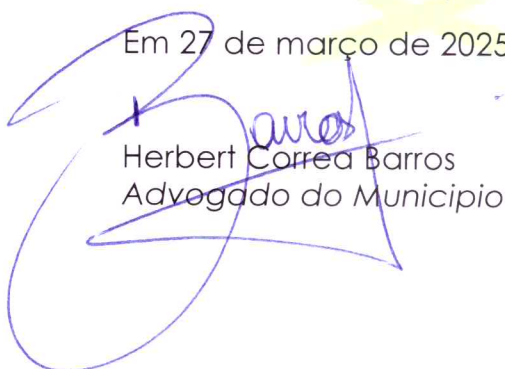 Em 27 de março de 2025
Barros
Herbert Correa Barros
Advogado do Municipio